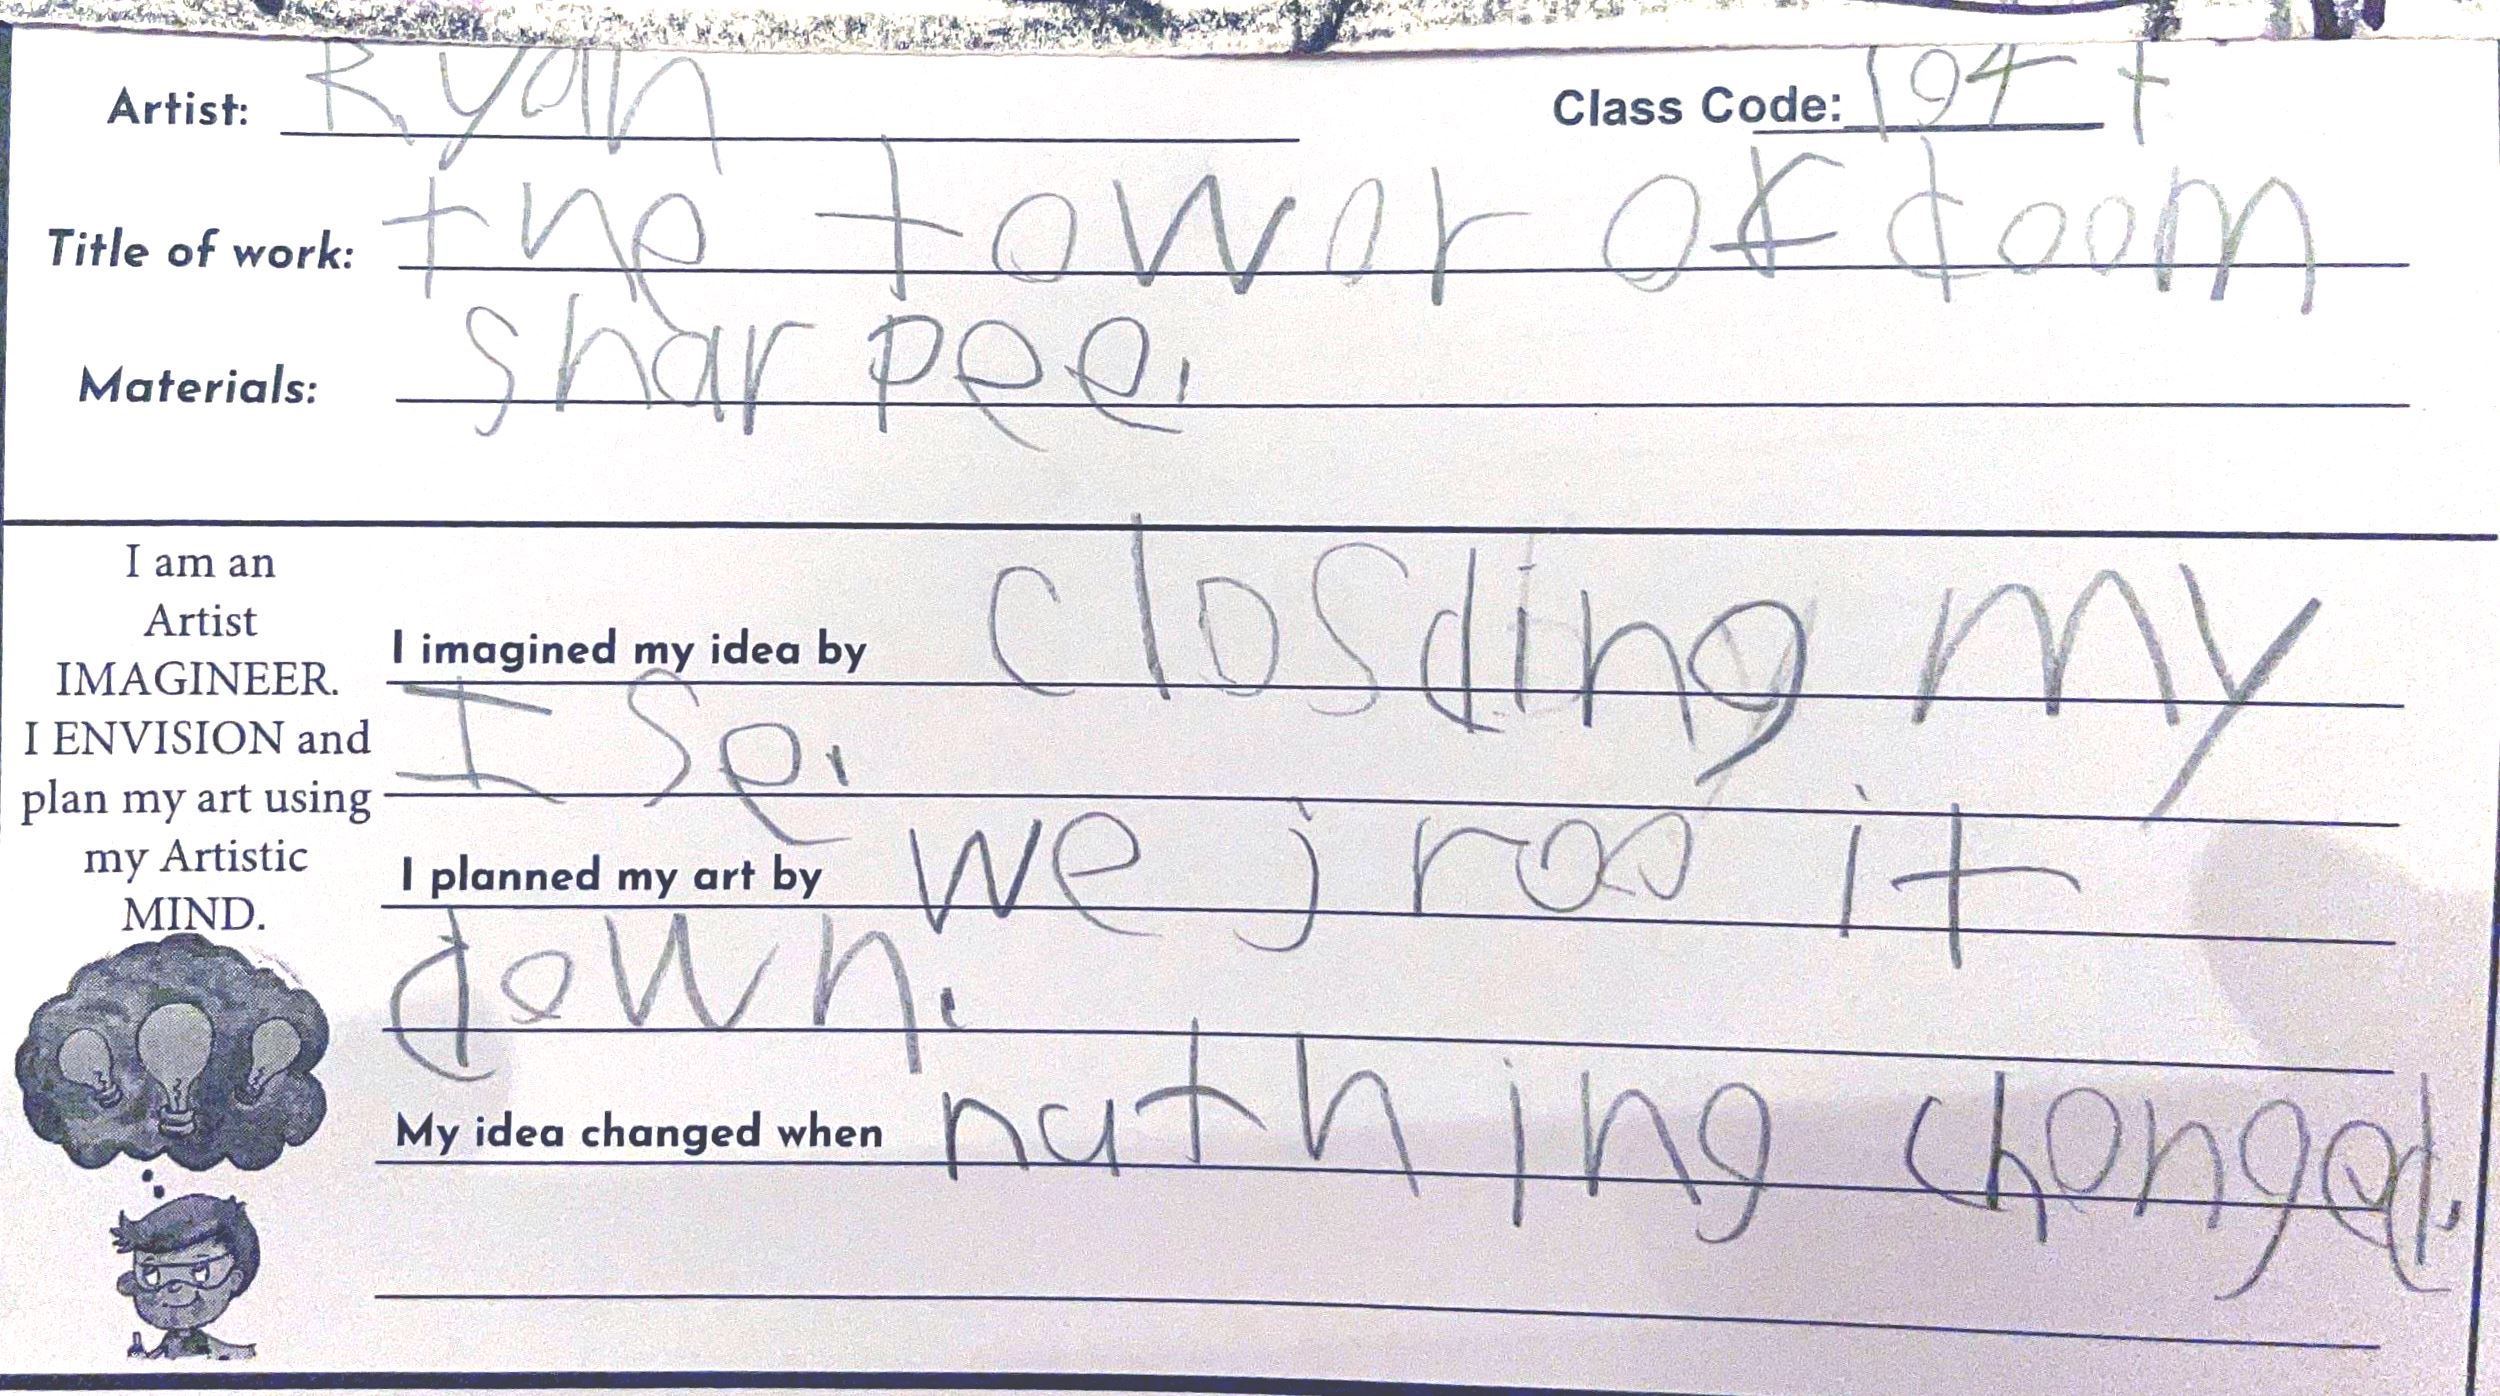 Artist: Ryan Class Code: 194 t
Title of work: the towor of doom
Materials: sharpee.
I am an
Artist
IMAGINEER.
I ENVISION and
plan my art using
my Artistic
MIND.
I imagined my idea by closding my
I se.
I planned my art by we jroo it
down.
My idea changed when nuthing chonged.